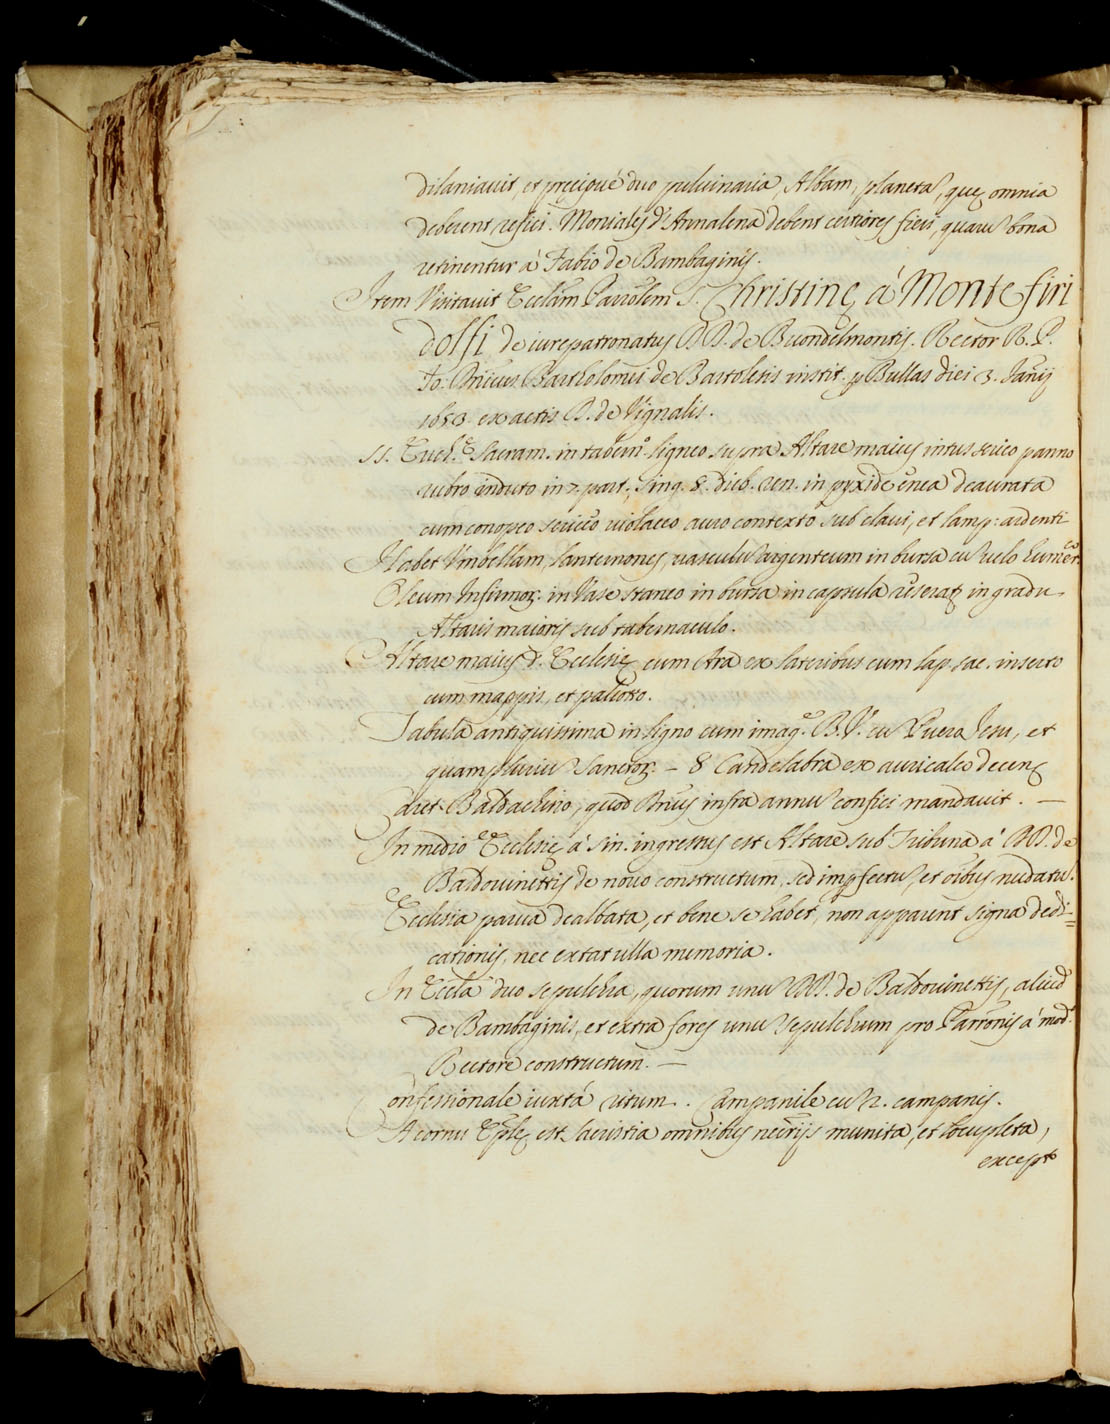 dilaniavit, et precipué duo pulvinaria, Albam, planeta, quę omnia
deberent refici. Moniales d'Annalena debent certiores fieri, quarum bona
retinentur á Fabio de Bambaginis.
Item Visitavit Eccłam Parrołem S. Christinę á Monte firi
dolfi de iurepatronatus DD. de Buondelmontis. Rector R. P.
Jo: Bartholomei de Bartolettis instit. p Bullas diei 3. Januarij
1653 ex actis D. de Vignalis.
SS. Euch.ę Sacram. in tabern.º ligneo supra Altare maius intus serico panno
rubro induto in 7. part., sing. 8. dieb. ren. in pyxide ęnea deaurata
cum conopeo sericeo violaceo auro contexto sub clavi, et lamp: ardenti
Habet Vmbellam, lanternones, vasculū argenteum in bursa cū velo humer.
Oleum Infirmoȝ. in Vase staneo in bursa in capsula in gradu
Altaris maioris sub tabernaculo.
Altare maius d. Ecclesię cum Ara ex lateribus cum lap. sac. inserto
cum mappis, et paliotto.
Tabula antiquissima in ligno cum imag.e B.V. cū Puero Jesu, et
quamplurium Sanctoȝ. – 8 Candelabra ex auricalco decen
caret Baldachino, quod Dnus infra annū confici mandavit. —
In medio Ecclesię á sin. ingressus est Altare sub Tribuna á DD. de
Baldovinettis de novo constructum, sed impfectū, et oībus nudatū.
Ecclesia parva dealbata, et bene se habet, non apparent signa dedi=
cationis, nec extat ulla memoria.
In Eccła duo sepulchra, quorum unū DD. de Baldovinettis, aliud
de Bambaginis, et extra fores unū sepulchrum pro Parronis á mod.º
Rectore constructum. —
Confessionale iuxtá ritum. Campanile cū 2. campanis.
A cornu Eplę est Sacristia omnibus necrijs munita, et locupleta,
except